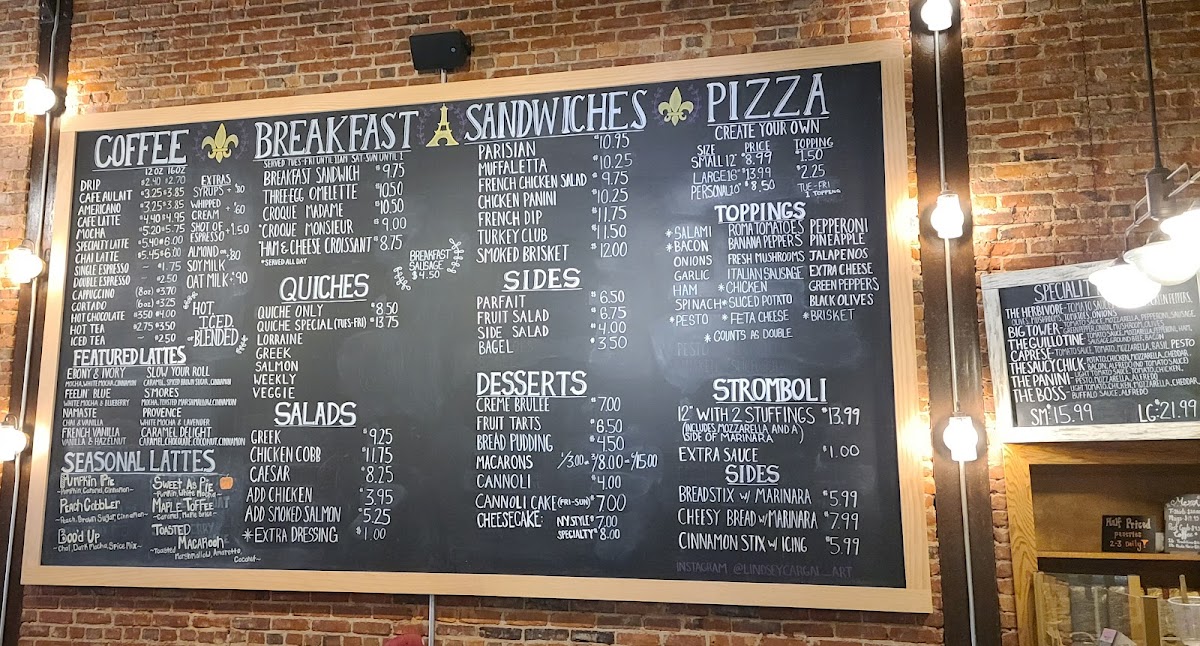 COFFEE
12 OZ 16OZ
DRIP $2.40 $2.70
CAFE AU LAIT $3.25 $3.85
AMERICANO $3.25 $3.85
CAFE LATTE $4.40 $4.95
MOCHA $5.20 $5.75
SPECIALTY LATTE $5.40 $6.00
CHAI LATTE $5.45 $6.00
SINGLE ESPRESSO - $1.75
DOUBLE ESPRESSO - $2.50
CAPPUCCINO (8oz) $3.70
CORTADO (6oz) $3.25
HOT CHOCOLATE $3.50 $4.00
HOT TEA $2.75 $3.50
ICED TEA - $2.50
EXTRAS
SYRUPS +$.80
WHIPPED
CREAM +$.60
SHOT OF
ESPRESSO +$1.50
ALMOND OR +$.80
SOY MILK
OAT MILK +$.90
HOT,
ICED,
OR BLENDED
FEATURED LATTES
EBONY & IVORY
MOCHA, WHITE MOCHA, CINNAMON
FEELIN' BLUE
WHITE MOCHA & BLUEBERRY
NAMASTE
CHAI & VANILLA
FRENCH VANILLA
VANILLA & HAZELNUT
SLOW YOUR ROLL
CARAMEL, SPICED BROWN SUGAR, CINNAMON
S'MORES
MOCHA, TOASTED MARSHMALLOW, CINNAMON
PROVENCE
WHITE MOCHA & LAVENDER
CARAMEL DELIGHT
CARAMEL, CHOCOLATE, COCONUT, CINNAMON
SEASONAL LATTES
Pumpkin Pie
-Pumpkin, Caramel, Cinnamon-
Peach Cobbler
-Peach, Brown Sugar, Cinnamon-
Boo'd Up
-Chai, Dark Mocha, Spice Mix-
Sweet As Pie
-Pumpkin, White Mocha-
Maple Toffee
Toasted
Macaroon
-Toasted Marshmallow, Amaretto,
Coconut-
BREAKFAST
SERVED TUES-FRI UNTIL 11AM SAT-SUN UNTIL 1
BREAKFAST SANDWICH $9.75
THREE EGG OMELETTE $10.50
CROQUE MADAME $10.50
*CROQUE MONSIEUR $9.00
*HAM & CHEESE CROISSANT $8.75
*SERVED ALL DAY
BREAKFAST
SAUSAGE
$4.50
QUICHES
QUICHE ONLY $8.50
QUICHE SPECIAL (TUES-FRI) $13.75
LORRAINE
GREEK
SALMON
WEEKLY
VEGGIE
SALADS
GREEK $9.25
CHICKEN COBB $11.75
CAESAR $8.25
ADD CHICKEN $3.95
ADD SMOKED SALMON $5.25
*EXTRA DRESSING $1.00
SANDWICHES
PARISIAN $10.95
MUFFALETTA $10.25
FRENCH CHICKEN SALAD $9.75
CHICKEN PANINI $10.25
FRENCH DIP $11.75
TURKEY CLUB $11.50
SMOKED BRISKET $12.00
SIDES
PARFAIT $6.50
FRUIT SALAD $6.75
SIDE SALAD $4.00
BAGEL $3.50
DESSERTS
CREME BRULEE $7.00
FRUIT TARTS $6.50
BREAD PUDDING $4.50
MACARONS 1/3.00 - 3/8.00 - 6/15.00
CANNOLI $4.00
CANNOLI CAKE (FRI-SUN) $7.00
CHEESECAKE: NY STYLE $7.00
SPECIALTY $8.00
PIZZA
CREATE YOUR OWN
SIZE PRICE TOPPING
SMALL 12" $8.99 $1.50
LARGE 16" $13.99 $2.25
PERSONAL 10" $8.50 TUE-FRI
TOPPINGS
*SALAMI
*BACON
ONIONS
GARLIC
HAM
SPINACH
*PESTO
ROMA TOMATOES
BANANA PEPPERS
FRESH MUSHROOMS
ITALIAN SAUSAGE
*CHICKEN
*SLICED POTATO
*FETA CHEESE
PEPPERONI
PINEAPPLE
JALAPENOS
EXTRA CHEESE
GREEN PEPPERS
BLACK OLIVES
*BRISKET
*COUNTS AS DOUBLE
STROMBOLI
12" WITH 2 STUFFINGS $13.99
(INCLUDES MOZZARELLA AND A
SIDE OF MARINARA)
EXTRA SAUCE $1.00
SIDES
BREADSTIX W/ MARINARA $5.99
CHEESY BREAD W/ MARINARA $7.99
CINNAMON STIX W/ ICING $5.99
INSTAGRAM @LINDSEYCARGAL_ART
THE HERBIVORE
BIG TOWER
THE GUILLOTINE
CAPRESE - TOMATO SAUCE, TOMATO, MOZZARELLA, BASIL, PESTO
THE SAUCY CHICK
THE PANINI
THE BOSS
BUFFALO SAUCE, ALFREDO
SM: $15.99 LG: $21.99
Half Priced
pastries
2-3 daily!